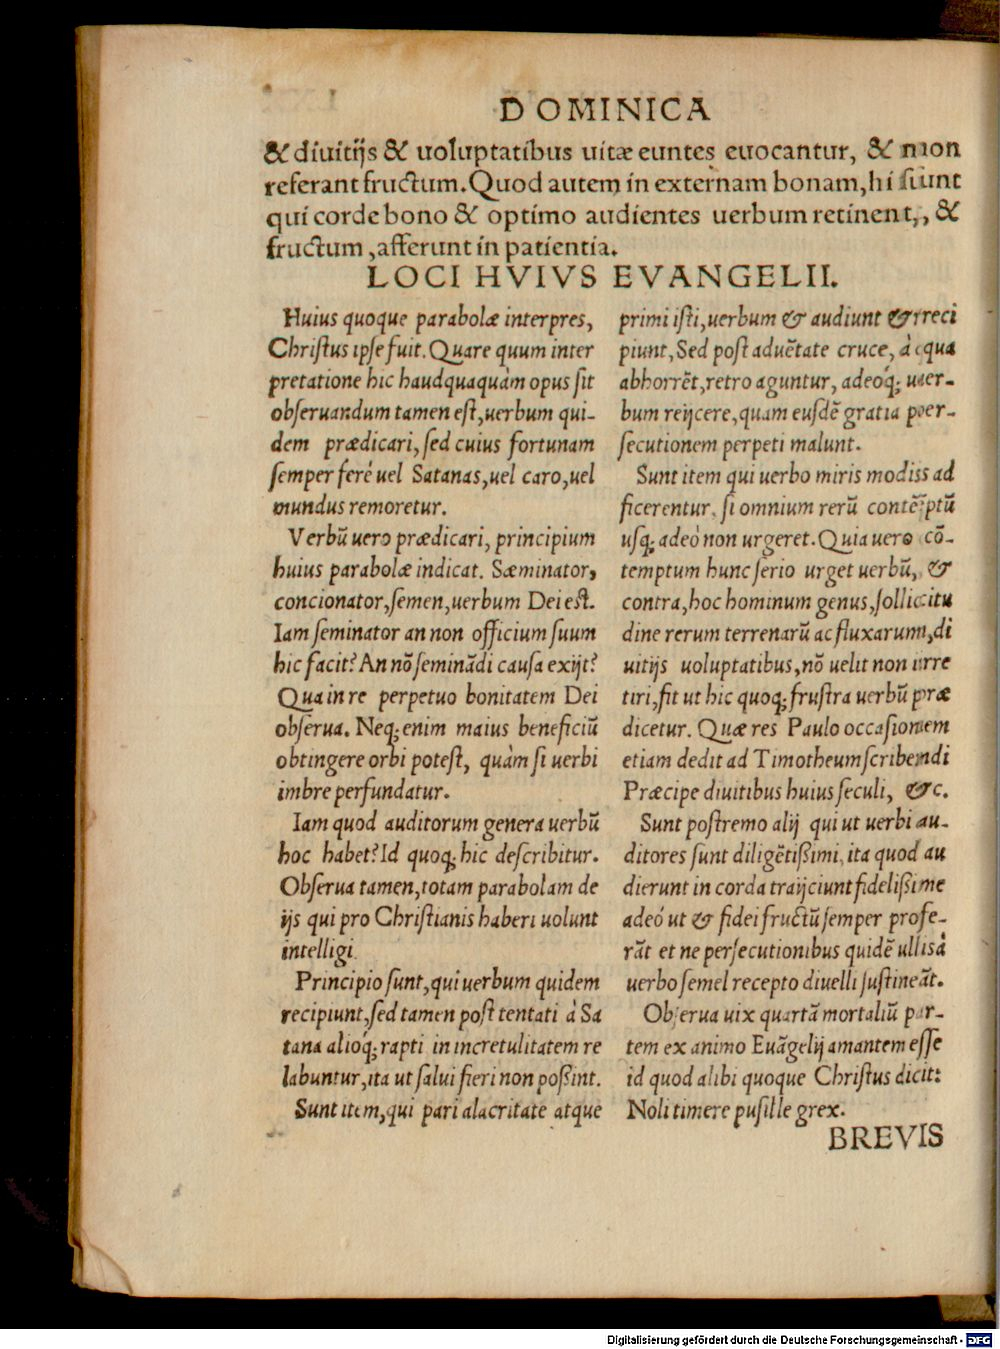 DOMINICA
& diuitijs & uoluptatibus uitæ euntes euocantur, & non
referant fructum. Quod autem in externam bonam, hi sunt
qui corde bono & optimo audientes uerbum retinent, &
fructum, afferunt in patientia.
LOCI HVIVS EVANGELII.
Huius quoque parabolæ interpres,
Christus ipse fuit. Quare quum inter
pretatione hic haudquaquàm opus sit
obseruandum tamen est, uerbum qui-
dem prædicari, sed cuius fortunam
semper feré uel Satanas, uel caro, uel
mundus remoretur.
Verbū uero prædicari, principium
huius parabolæ indicat. Sæminator,
concionator, semen, uerbum Dei est.
Iam seminator an non officium suum
hic facit? An nō seminādi causa exijt?
Qua in re perpetuo bonitatem Dei
obserua. Neq; enim maius beneficiū
obtingere orbi potest, quàm si uerbi
imbre perfundatur.
Iam quod auditorum genera uerbū
hoc habet? Id quoq; hic describitur.
Obserua tamen, totam parabolam de
ijs qui pro Christianis haberi uolunt
intelligi.
Principio sunt, qui uerbum quidem
recipiunt, sed tamen post tentati à Sa
tana alioq́; rapti in incretulitatem re
labuntur, ita ut salui fieri non poßint.
Sunt item, qui pari alacritate atque
primi isti, uerbum & audiunt & reci
piunt, Sed post aduētate cruce, à qua
abhorrēt, retro aguntur, adeoq́; uer-
bum reijcere, quam eusdē gratia per-
secutionem perpeti malunt.
Sunt item qui uerbo miris modis ad
ficerentur, si omnium rerū contēptū
usq; adeò non urgeret. Quia uero cō-
temptum hunc serio urget uerbū, &
contra, hoc hominum genus, sollicitu
dine rerum terrenarū ac fluxarum, di
uitijs uoluptatibus, nō uelit non irre
tiri, fit ut hic quoq; frustra uerbū præ
dicetur. Quæ res Paulo occasionem
etiam dedit ad Timotheum scribendi
Præcipe diuitibus huius seculi, &c.
Sunt postremo alij qui ut uerbi au-
ditores sunt diligētißimi, ita quod au
dierunt in corda traijciunt fidelißime
adeó ut & fidei fructū semper profe-
rāt et ne persecutionibus quidē ullis à
uerbo semel recepto diuelli sustineāt.
Obserua uix quartā mortaliū par-
tem ex animo Euāgelij amantem esse
id quod alibi quoque Christus dicit:
Noli timere pusille grex.
BREVIS
Digitalisierung gefördert durch die Deutsche Forschungsgemeinschaft - DFG